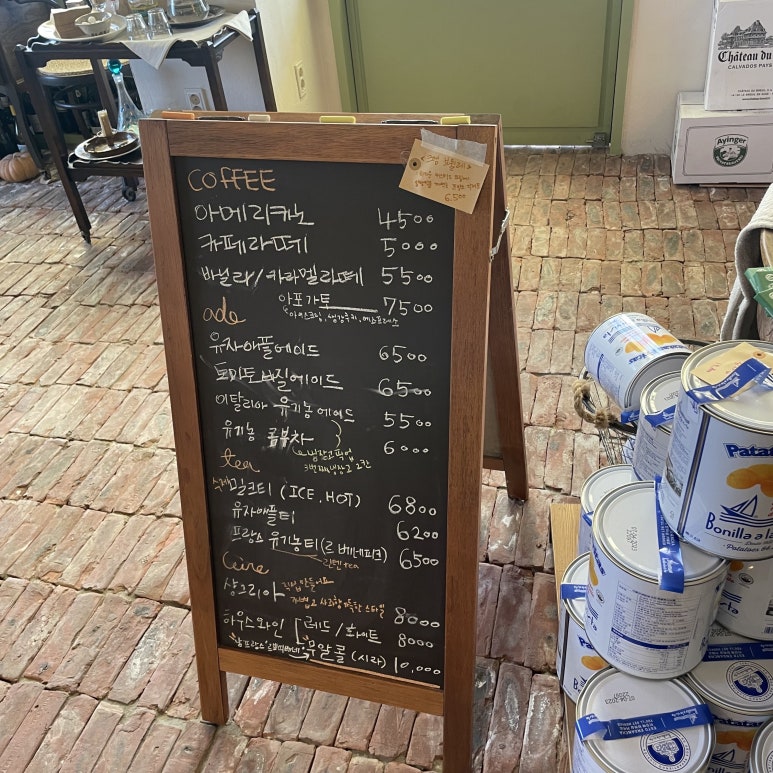 COFFEE
아메리카노 4500
카페라떼 5000
바닐라/카라멜라떼 5500
아포가토 7500
ade
유자애플에이드 6500
토마토 바질에이드 6500
이탈리아 유기농에이드 5500
유기농 콤부차 6000
냉장고픽업
3번째 냉장고 2칸
tea
수제밀크티 (ICE, HOT) 6800
유자애플티 6200
프랑스 유기농티(르 베네피크) 6500
샹그리아 8000
직접 만들어요
하우스와인 레드/화이트 8000
무알콜 (시라) 10,000
6.500
Château du
CALVADOS PAYS
Ayinger
Bonilla a la
Patatas